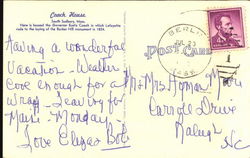 Coach House
South Sudbury, Mass.
Here is housed the Governor Eustis Coach in which Lafayette
rode to the laying of the Bunker Hill monument in 1824.
Having a wonderful
vacation. Weather
cool enough for a
wrap. Leaving for
Maine Monday.
Love Eliza & Bob
POST CARD
BERLIN
Mr. Mrs Homer
Drive
Raleigh
N.C.